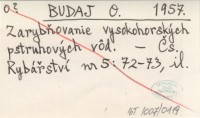 03
BUDAJ O. 1957.
Zarybňovanie vysokohorských
pstruhových vôd. – Čs.
Rybářství nr 5: 72-73, il.
ST 1007/0419